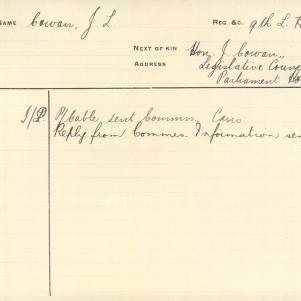 NAME Cowan, J L REG. &C. 9th L. H
NEXT OF KIN Hon. J. Cowan,
ADDRESS Legislative Counc
Parliament Ho
P/Cable sent Commn. Cairo.
Reply from Commes. Information sen